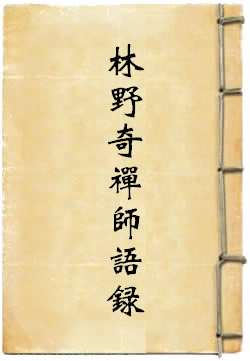 林野奇禪師語録